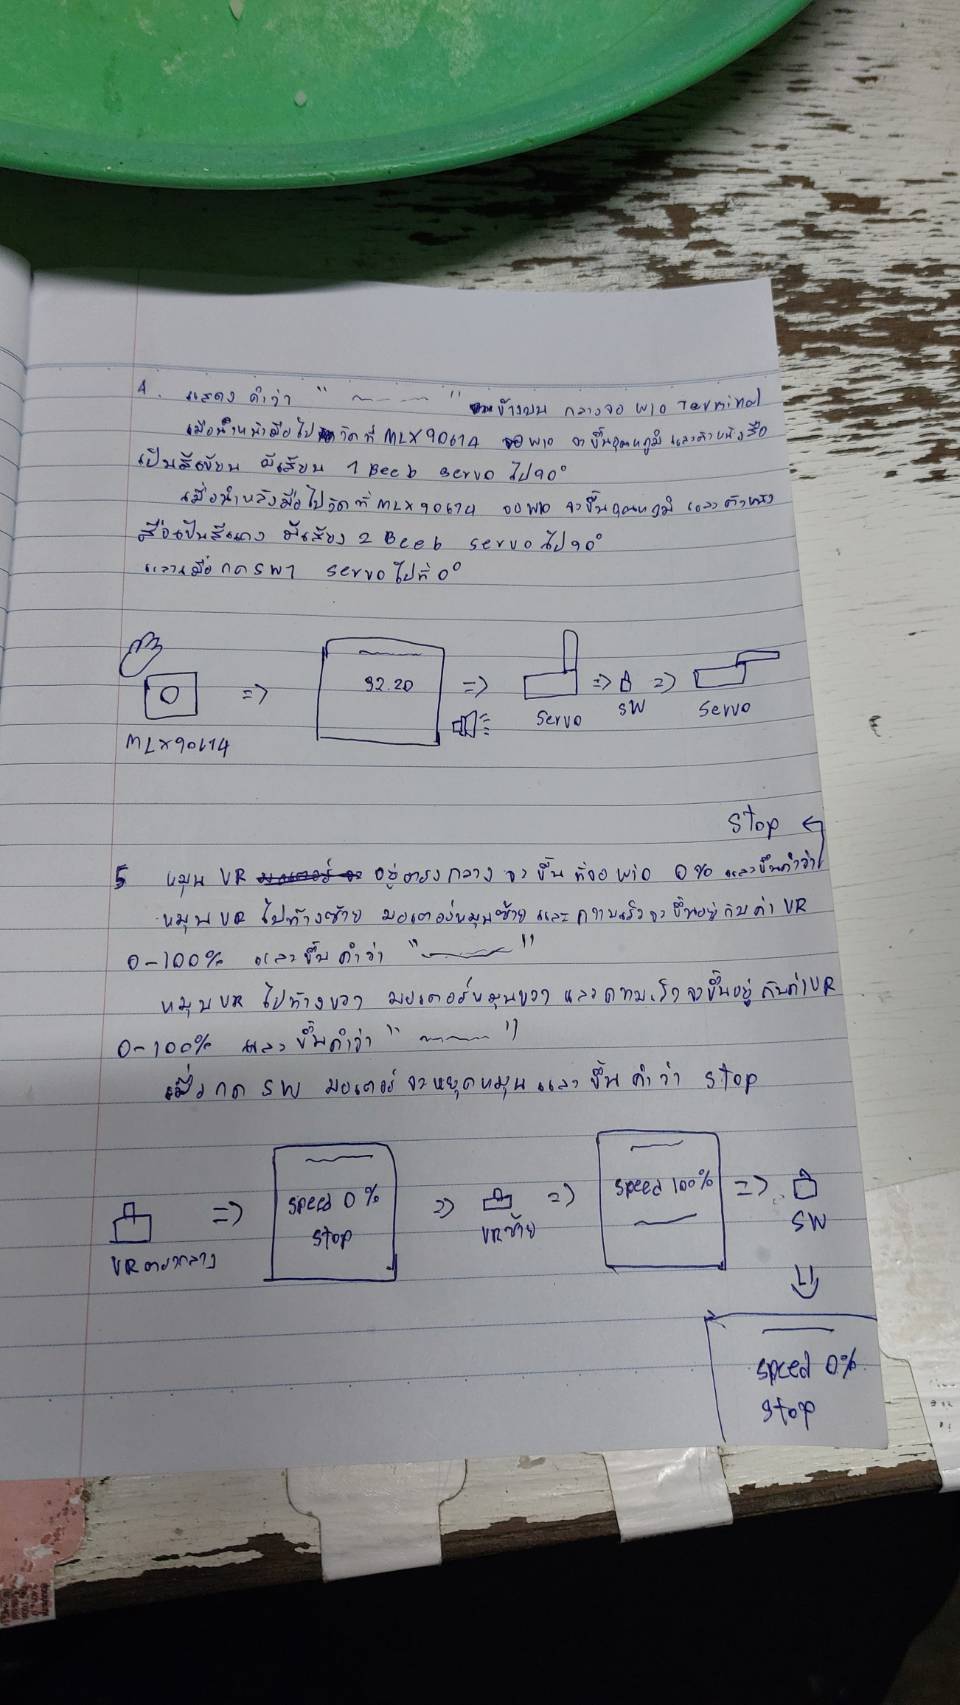 4. แสดง คำว่า " ~~~ " ข้างบน กลางจอ wio Terminal
เมื่อนำหน้ามือไปวัดที่ MLX90614 จอ wio จะขึ้นอุณหภูมิ และตัวหนังสือ
เป็นสีเขียน มีเสียบ 1 Beeb servo ไป 90°
เมื่อนำหลังมือไปวัดที่ MLX90614 จอ wio จะขึ้นอุณหภูมิ และตัวหนัง
สือเป็นสีแดง มีเสียง 2 Beeb servo ไป 90°
และเมื่อ กด SW1 servo ไปที่ 0°
32.20
MLX90614
servo
SW
servo
stop
5 หมุน VR อยู่ตรงกลาง จะขึ้น ที่จอ wio 0% และขึ้นคำว่า
หมุน VR ไปทางซ้าย มอเตอร์หมุนซ้าย และ ความเร็วจะขึ้นอยู่กับค่า VR
0-100% และขึ้น คำว่า " ~~~ "
หมุน VR ไปทางขวา มอเตอร์หมุนขวา และความเร็วจะขึ้นอยู่กับค่า VR
0-100% และ ขึ้นคำว่า " ~~~ "
เมื่อ กด SW มอเตอร์ จะหยุดหมุน และ ขึ้น คำว่า stop
VR ตรงกลาง
speed 0%
stop
VR ซ้าย
speed 100%
SW
speed 0%
stop